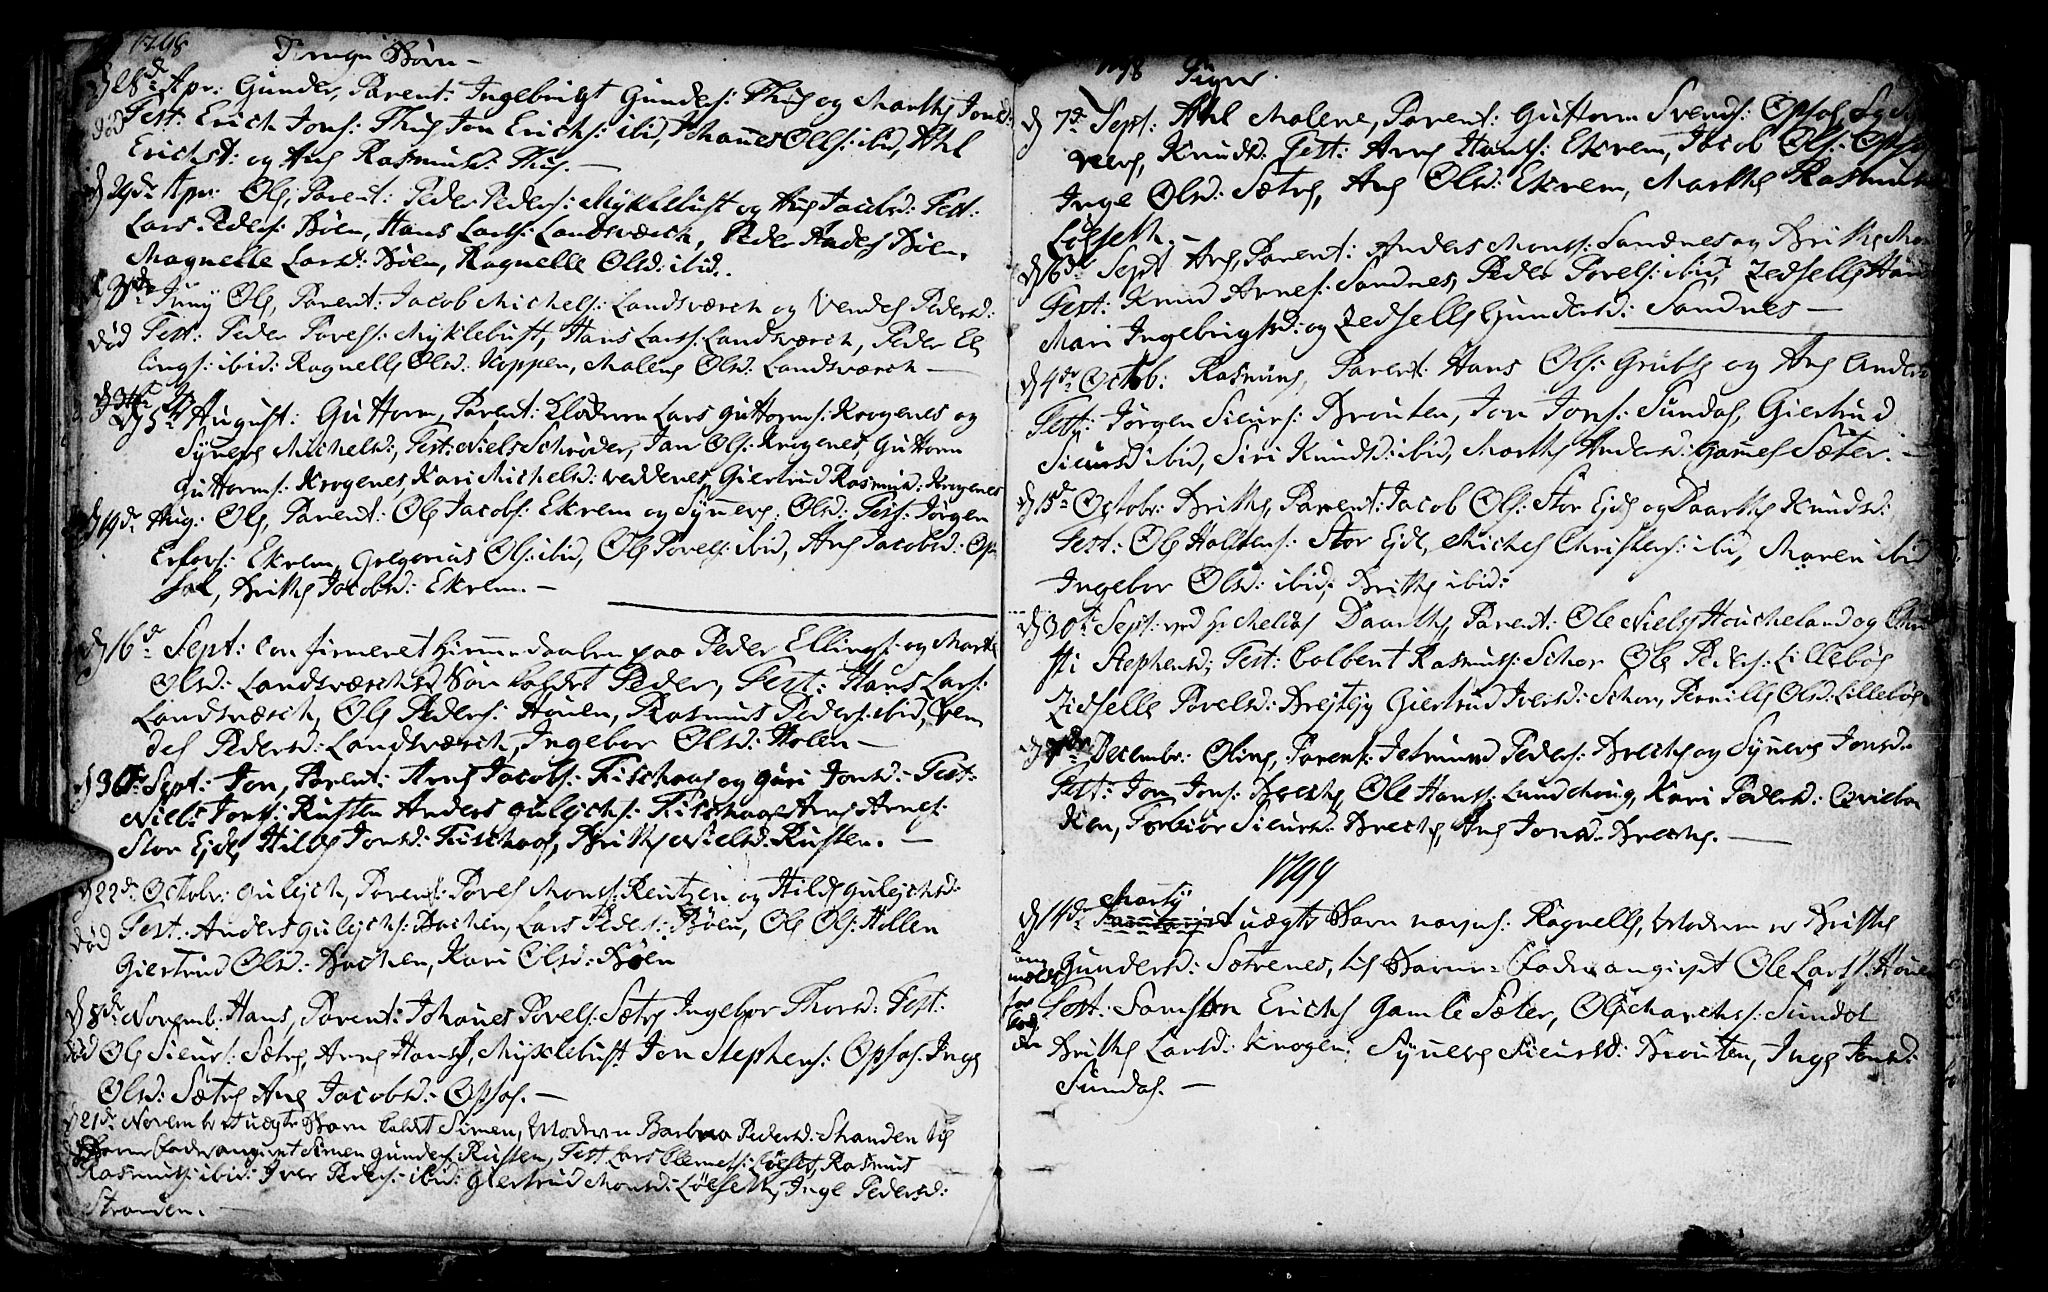 1798 Drenge Børn -
d 28de Apr: Gunder, Parent: Ingebrigt Gunders: Thue og Marthe Jonsd:
død Test: Erich Jons: Thue Jon Erichs: ibid, Johannes Ols: ibid, Ahl
Erichsd: og Ane Rasmusd: Thue. -
d 29de Apr: Ole, Parent: Peder Peders: Myklebust og Ane Jacobsd: Test:
Lars Peders: Bøen, Hans Lars: Landsværch, Peder Bøen,
Magnelle Larsd: Bøen, Ragnelle Olsd: ibid.
Juny Ole, Parent: Jacob Michels: Landsværch og Vendel Pedersd:
død Test: Peder Povels: Myklebust, Hans Lars: Landsværch, Peder El
lings: ibid: Ragnelle Olsd: Koppen, Malene Olsd: Landsværch -
d 5te August: Guttorm, Parent: Lars Guttorms: Krogenes og
Synneve Michelsd:, Test: Niels Schrøder, Jan Ols: Krogenes, Guttorm
Guttorms: Krogenes, Kari Michelsd: Veddenes, Giertrud Rasmusd: Krogenes
d 19de Aug: Ole, Parent: Ole Jacobs: Ekrem og Synneve Olsd: Test: Jørgen
Ekrem, Gregorius Ols: ibid, Ole Povels: ibid, Ane Jacobsd: Op
sal, Brithe Jacobsd: Ekrem. -
d 16de Sept: Confirmeret Hiemmedaaben paa Peder Ellings: og Marthe
Olsd: Landsværchs Søn kaldet Peder, Test: Hans Lars:
Landsværch, Ole Peders: Houen, Rasmus Peders: ibid, Ven
del Pedersd: Landsværch, Ingebor Olsd: Holen -
d 30te Sept: Jon, Parent: Arne Jacobs: Fischaas og Guri Jonsd: Test:
Niels Jons: Rusten Anders Gulichs: Fischaas Arne Arnes:
Stor Eide, Hilde Jonsd: Fischaas, Brithe Nielsd: Rusten. -
d 22de Octobr: Gulich, Parent: Povel Mons: Reutzen og Hilde Gulichsd:
død Test: Anders Gulichs: Bachen, Lars Peders: Bøen, Ole Ols: Hollen
Giertrud Olsd: Bachen, Kari Olsd: Bøen
d 8de Novemb: Hans, Parent: Johannes Povels: Sætre Ingebor Thorsd: Test:
død Ole Siurs: Sætre, Arne Hans: Myklebust Jon Stephens: Opsal Inge
Olsd: Sætre Ane Jacobsd: Opsal. -
d 21de Novembr et uægte Barn kaldet Simen, Moderen Barbroe Pedersd: Stranden til
Barne Fader angivet Simen Gunders: Rusten, Test Lars Clemets: Løeset, Rasmus
Rasmuss: ibid: Iver Peders: ibid: Giertrud Monsd: Løeseth, Inge Pedersd:
Stranden. -
1798 Piger
d 7de Sept: Ahl Malene, Parent: Guttorm Svends: Opsal,
Knudsd: Test: Arne Hans: Ekrem, Jacob Ols: Opsal
Inge Olsd: Sætre, Ane Olsd: Ekrem, Marthe Rasmusd:
Løeseth. -
d 16de Sept Ane, Parent: Anders Mons: Sandnes og Brithe
Test: Knud Arnes: Sandnes, Peder Povels: ibid, Zedselle
Mari Ingebrigtsd: og Zedselle Gundersd: Sandnes -
d 4de Octob: Rasmus, Parent: Hans Ols: Grube og Ane Andersd
Test: Jørgen Siurs: Brouten, Jon Jons: Sundal, Giertrud
Siursd ibid, Siri Knudsd: ibid, Marthe Andersd: Gamel Sæter. -
d 15de Octobr: Brithe, Parent: Jacob Ols: Stor Eide og Daarthe Knudsd:
Test: Ole Halstens: Stor Eide, Michel Christens: ibid, Maren ibid
Ingebor Olsd: ibid, Brithe ibid:
d 30te Sept: ved Hr Melias Daarthe, Parent: Ole Niels: Houcheland og
Stephensd: Test: Colbent Rasmus: Schor Ole Peders: Lillebøe
Zidselle Povelsd: Giertrud Iversd: Schor, Pernille Olsd: Lillebøe
d Decembr: Oline, Parent: Jetmund Peders: Breche og Synneve Jonsd:
Test: Jon Jons: Breche, Ole Hans: Lundehoug, Kari Pedersd:
Torbiør Siursd: Breche, Ane Jonsd: Breche. -
1799
Marty
d 14de et uægte Barn navne: Ragnelle, Moderen er Brithe
Gundersd: Sætrenes, til Barne-Fader angivet Ole Lars: Houen
Test: Samson Erichs Gamle Sæter, Ole Marchs: Sundal
Brithe Larsd: Krogen, Synneve Siursd: Brouten, Inge Jonsd:
Sundal. -